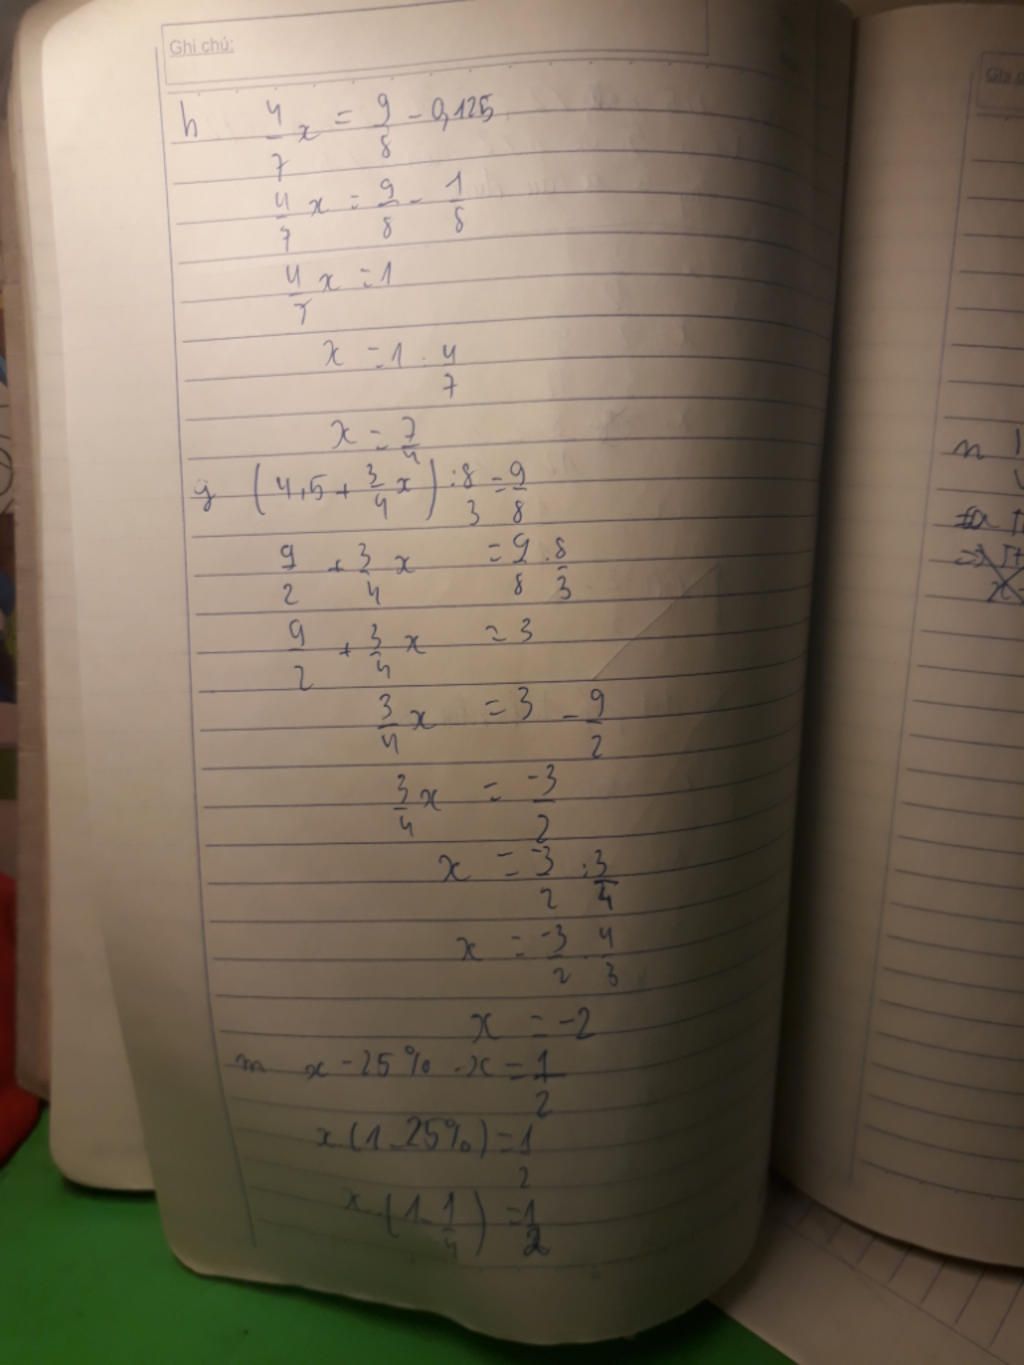 Ghi chú:
h 4/7 x = 9/8 - 0,125
4/7 x = 9/8 - 1/8
4/7 x = 1
x = 1 : 4/7
x = 7/4
g (4,5 + 3/4 x) : 8/3 = 9/8
9/2 + 3/4 x = 9/8 . 8/3
9/2 + 3/4 x = 3
3/4 x = 3 - 9/2
3/4 x = -3/2
x = -3/2 : 3/4
x = -3/2 . 4/3
x = -2
m x - 25% . x = 1/2
x (1 - 25%) = 1/2
x (1 - 1/4) = 1/2
Ghi c
n